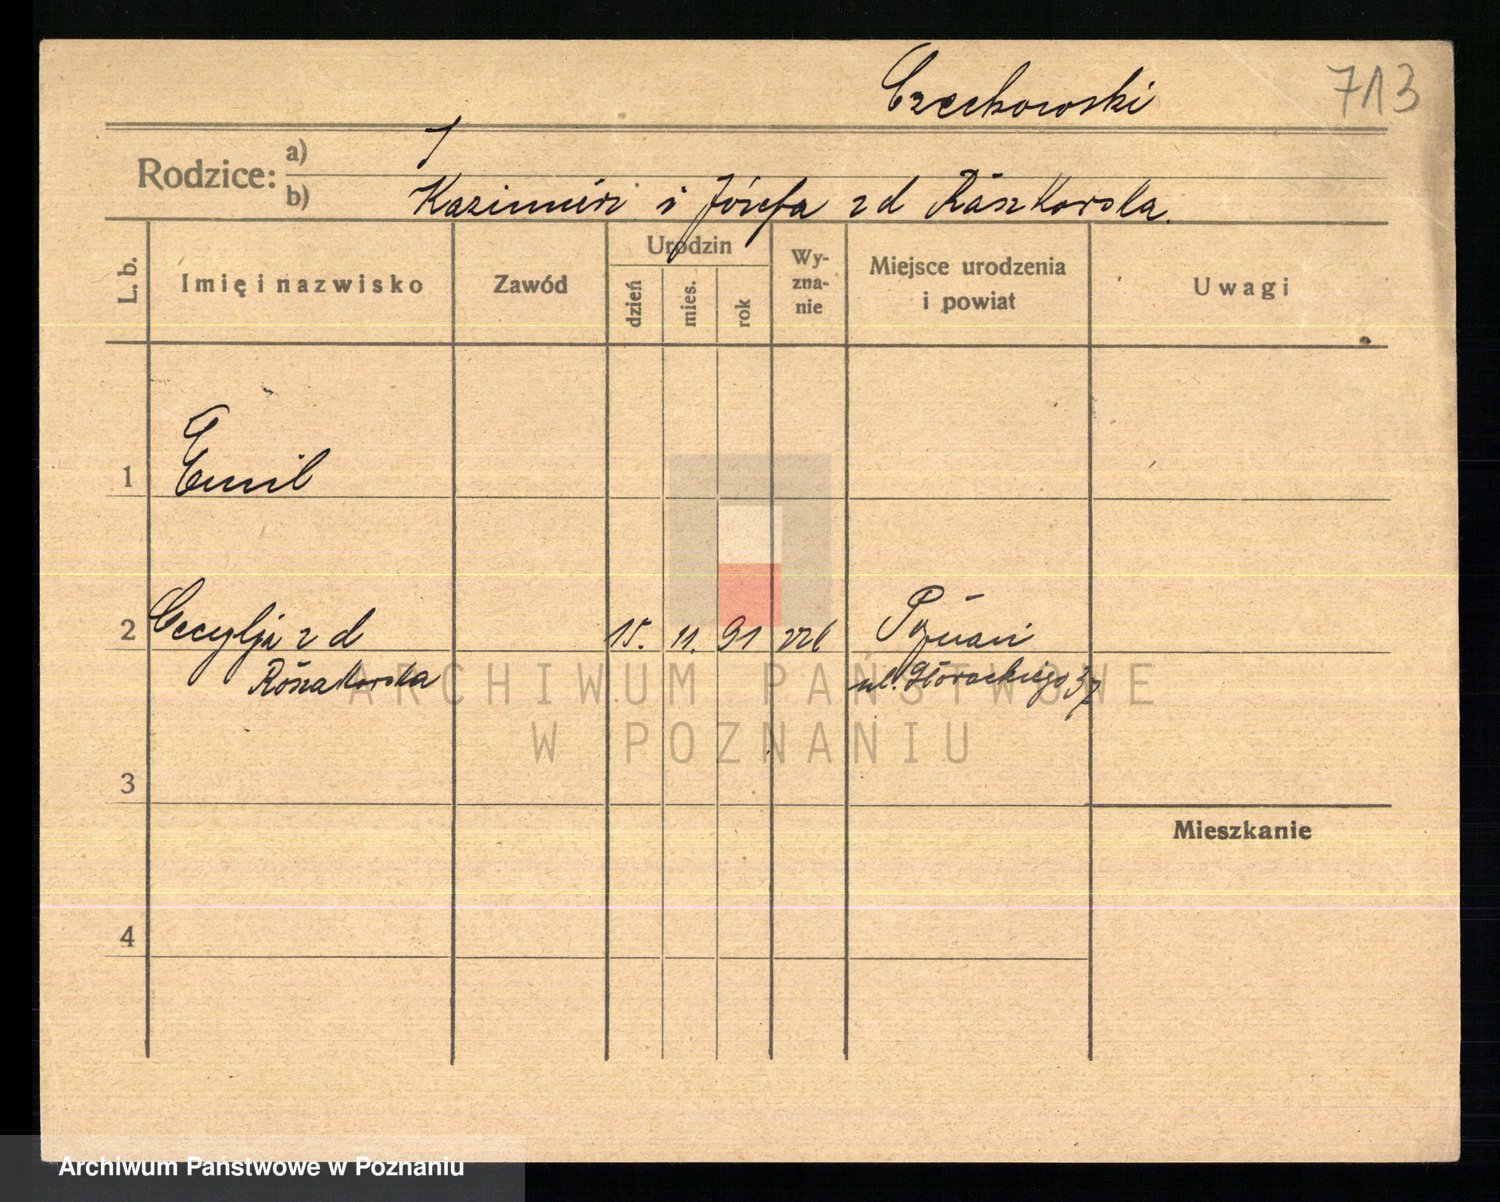 Czechowski 713
Rodzice: a) /
b) Kazimierz i Józefa z d Raszkowska.
L. b. Imię i nazwisko Zawód Urodzin dzień mies. rok Wy-zna-nie Miejsce urodzenia i powiat Uwagi
1 Emil
2 Cecylja z d 15. 11. 91 Poznań
ul. Głowackiego 37
3
Mieszkanie
4
ARCHIWUM PAŃSTWOWE
W POZNANIU
Archiwum Państwowe w Poznaniu